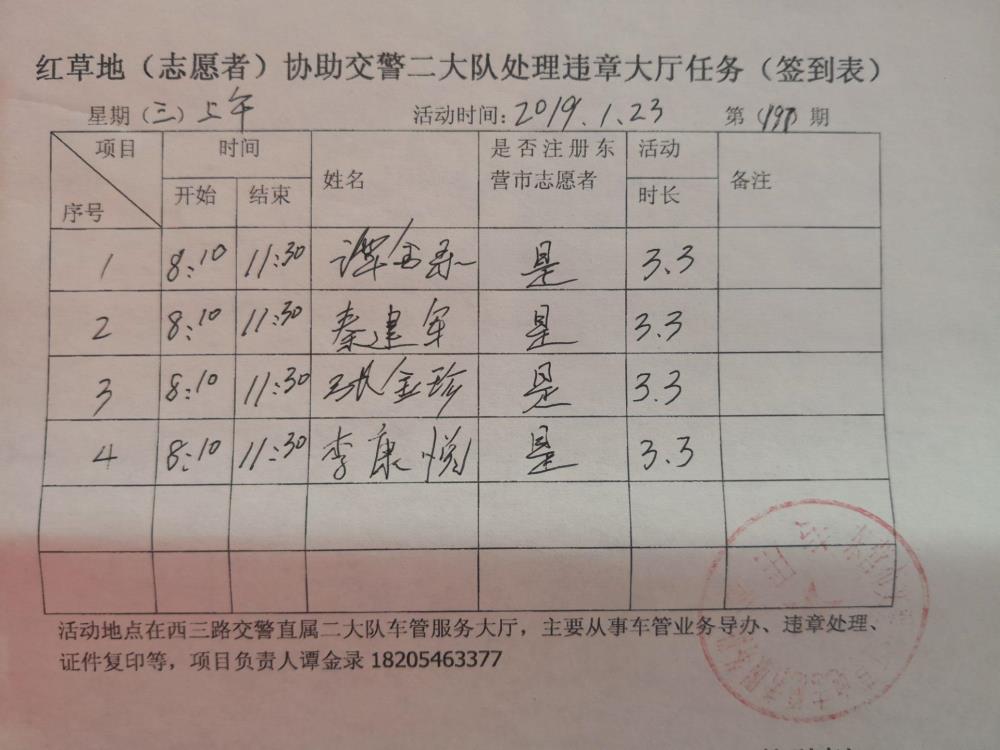 红草地（志愿者）协助交警二大队处理违章大厅任务（签到表）
星期（三）上午 活动时间：2019.1.23 第（198）期
项目 时间 姓名 是否注册东 活动 备注
序号 开始 结束 营市志愿者 时长
1 8:10 11:30 谭金录 是 3.3
2 8:10 11:30 秦建军 是 3.3
3 8:10 11:30 张金珍 是 3.3
4 8:10 11:30 李康悦 是 3.3
活动地点在西三路交警直属二大队车管服务大厅，主要从事车管业务导办、违章处理、
证件复印等，项目负责人谭金录 18205463377